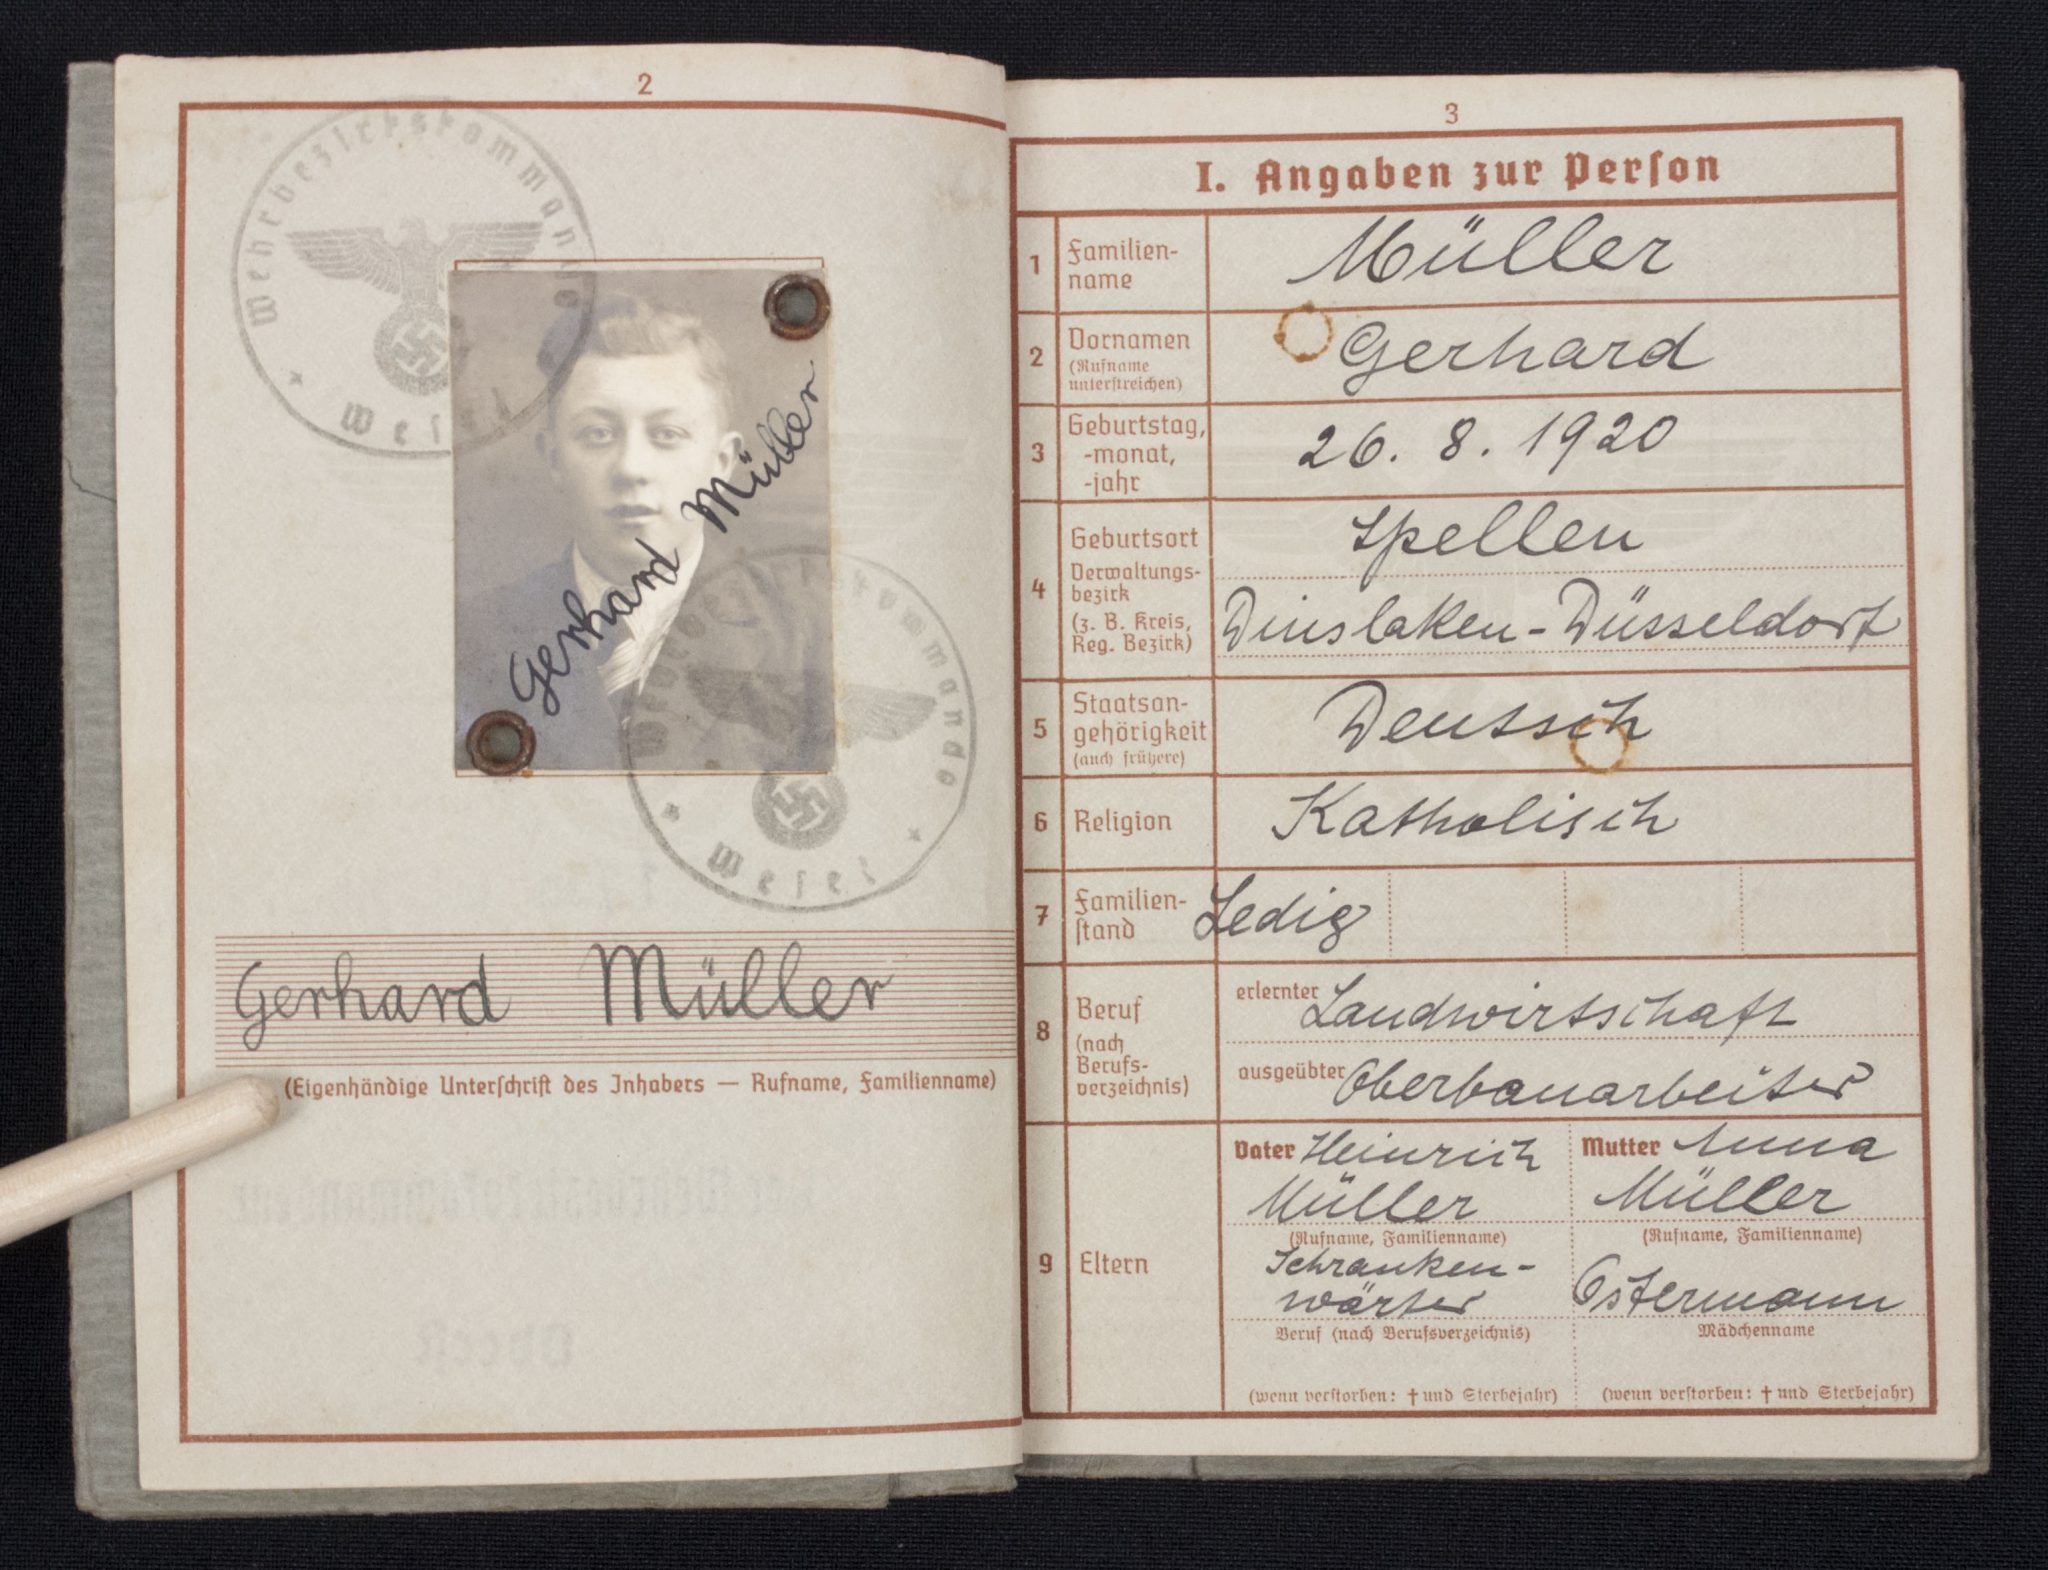 2
Wehrbezirkskommando
Wesel
Gerhard Müller
Wehrbezirkskommando
Wesel
Gerhard Müller
(Eigenhändige Unterschrift des Inhabers — Rufname, Familienname)
3
I. Angaben zur Person
1 Familien-
name
Müller
2 Vornamen
(Rufname
unterstreichen)
Gerhard
3 Geburtstag,
-monat,
-jahr
26. 8. 1920
4 Geburtsort
Verwaltungs-
bezirk
(z. B. Kreis,
Reg. Bezirk)
Spellen
Dinslaken-Düsseldorf
5 Staatsan-
gehörigkeit
(auch frühere)
Deutsch
6 Religion
Katholisch
7 Familien-
stand
Ledig
8 Beruf
(nach
Berufs-
verzeichnis)
erlernter Landwirtschaft
ausgeübter Oberbauarbeiter
9 Eltern
Vater Heinrich
Müller
(Rufname, Familienname)
Schranken-
wärter
Beruf (nach Berufsverzeichnis)
(wenn verstorben: † und Sterbejahr)
Mutter Anna
Müller
(Rufname, Familienname)
Ostermann
Mädchenname
(wenn verstorben: † und Sterbejahr)